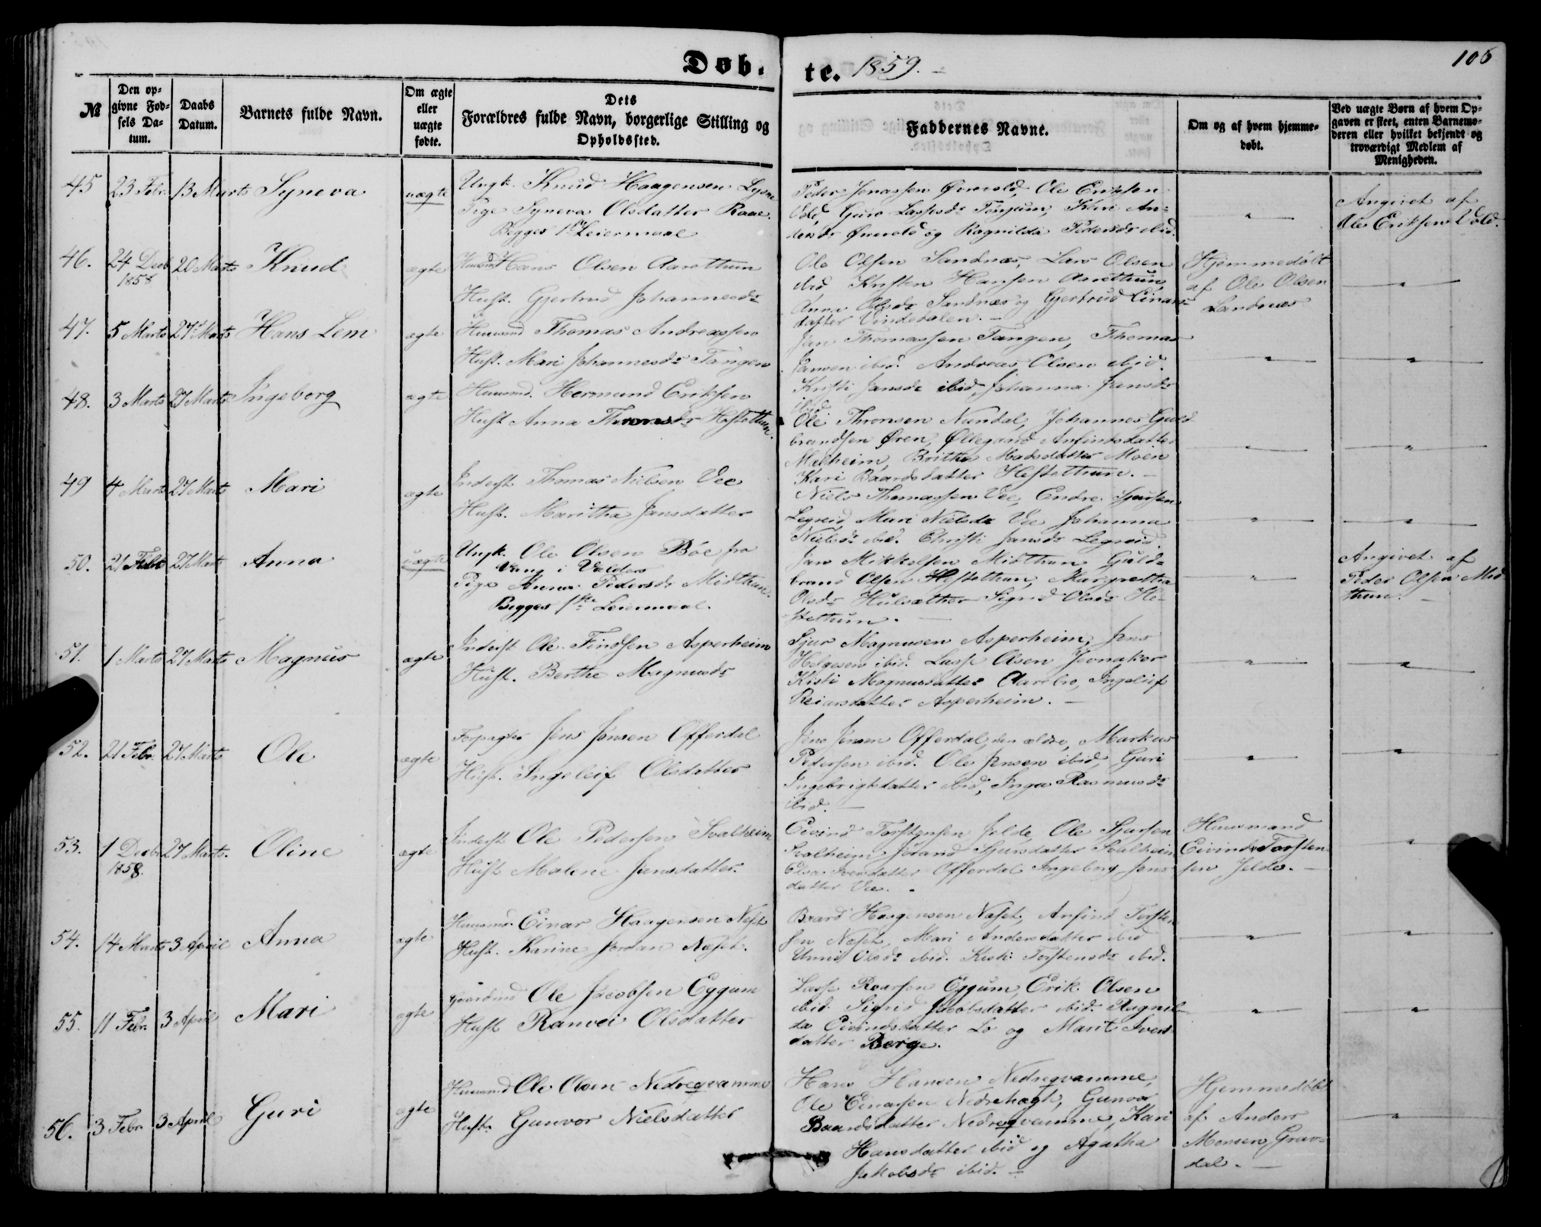 Døb-
te. 1859.
106
№
Den op-
givne Fød-
sels Da-
tum.
Daabs
Datum.
Barnets fulde Navn.
Om ægte
eller
uægte
fødte.
Dets
Forældres fulde Navn, borgerlige Stilling og
Opholdssted.
Faddernes Navne.
Om og af hvem hjemme-
døbt.
Ved uægte Børn af hvem Op-
gaven er skeet, enten Barnemo-
deren eller hvilket bekjendt og
troværdigt Medlem af
Menigheden.
45 23 Febr. 13 Marts Syneva uægte
Ungk. Knud Haagensen
Pige Syneva Olsdatter
Begges 1ste Leiermaal
Peder Jonassen Ole Eriksen
Angivet af
Ole Eriksen Vold.
46. 24 Decb 1858 20 Marts Knud ægte
Huusmd Hans Olsen Aarethun
Hust. Gjertrud Johannesd:
Ole Olsen Sandnæs, Lars Olsen
ibid Kristen Hansen Aarethun,
Anna Olsd: Sandnæs og Gjertrud Einars-
datter
Hjemmedøbt
af Ole Olsen
Sandnæs
47. 5 Marts 27 Marts Hans Lem ægte
Huusmd Thomas Andreassen
Hust. Mari Johannesd: Tangen
Jan Thomassen Tangen, Thomas
Jansen ibid. Andreas Olsen ibid.
Kristi Jansdr ibid, Johanna Jansdr
ibid.
48. 3 Marts 27 Marts Ingeborg ægte
Huusmd. Hermund Eriksen
Hust. Anna Hestethun.
Ole Thronsen Nundal, Johannes Guld-
brandsen Øren, Øllegaard Arfinnsdatter
Melheim, Brithe Madsdatter Moen
Kari Baardsdatter Hestethun.
49 4 Marts 27 Marts Mari ægte
Inderst Thomas Nilsen Vee
Hust. Maritha Jansdatter
Niels Thomassen Vee, Endre Sjursen
Legreid Mari Nielsdr Vee Johanna
Nielsdr ibid. Christi Jansdr Legreid.
50. 21 Febr 27 Marts Anna uægte
Ungk. Ole Olsen Böe fra
Vang i Valders
Pige Anna Pedersdr Midthun.
Begges 1ste Leiermaal.
Jan Mikkelsen Midthun Guld-
brand Olsen Hestethun, Margretha
Olsdr Sigrid Olsdr He-
stethun.
Angivet af
Peder Olsen Mid-
thun.
51. 1 Marts 27 Marts Magnus ægte
Inderst Ole Findsen Asperheim
Hust. Berthe Magnusdr
Sjur Magnusen Asperheim, Jens
Helgesen ibid. Lasse Olsen
Kisti Magnusdatter Ingeleif
Reiarsdatter Asperheim.
52. 21 Febr 27 Marts Ole ægte
Forpagter Jens Jensen Offerdal
Hust. Ingeleif Olsdatter
Jens Jensen Offerdal, den ældre, Markus
Pedersen ibid. Ole Jensen ibid, Guri
Ingebrigtdatter ibid, Inger Rasmusdr
ibid.
53. 1 Decbr 1858 27 Marts. Oline ægte
Inderst Ole Pedersen Svalheim
Hust Malene Jansdatter
Eivind Torstensen Jelde, Ole Sjursen
Svalheim, Sjursdatter Svalheim
Offerdal Ingeborg Jens-
datter Vee.
Huusmand
Eivind Torsten-
sen Jelde.
54. 14 Marts 3 April Anna ægte
Huusmd Einar Haagensen Næset
Hust. Karine Næset.
Baard Haagensen Næset, Arfind Torsten-
sen Næset, Mari Andersdatter ibid
Anna Olsdr ibid. Kisti Torstensdr ibid.
55. 11 Febr. 3 April Mari ægte
Gaardmd Ole Jacobsen Eggum
Hust Ranvei Olsdatter
Lasse Eggum, Erik Olsen
ibid Sigrid Jacobsdatter ibid. Ragnil-
da Eivindsdatter Lo og Marit Ivers-
datter Berge.
56. 3 Febr 3 April Guri ægte
Huusmd Ole Olsen Nedreqvamme
Hust. Gunvor Nielsdatter
Hans Hansen Nedreqvamme,
Ole Einarsen Nedrehagt, Gunvor
Baardsdatter Nedreqvamme, Kari
Hansdatter ibid og Agatha
Jakobsdr ibid.
Hjemmedøbt
af Anders
Monsen Grav-
dal.